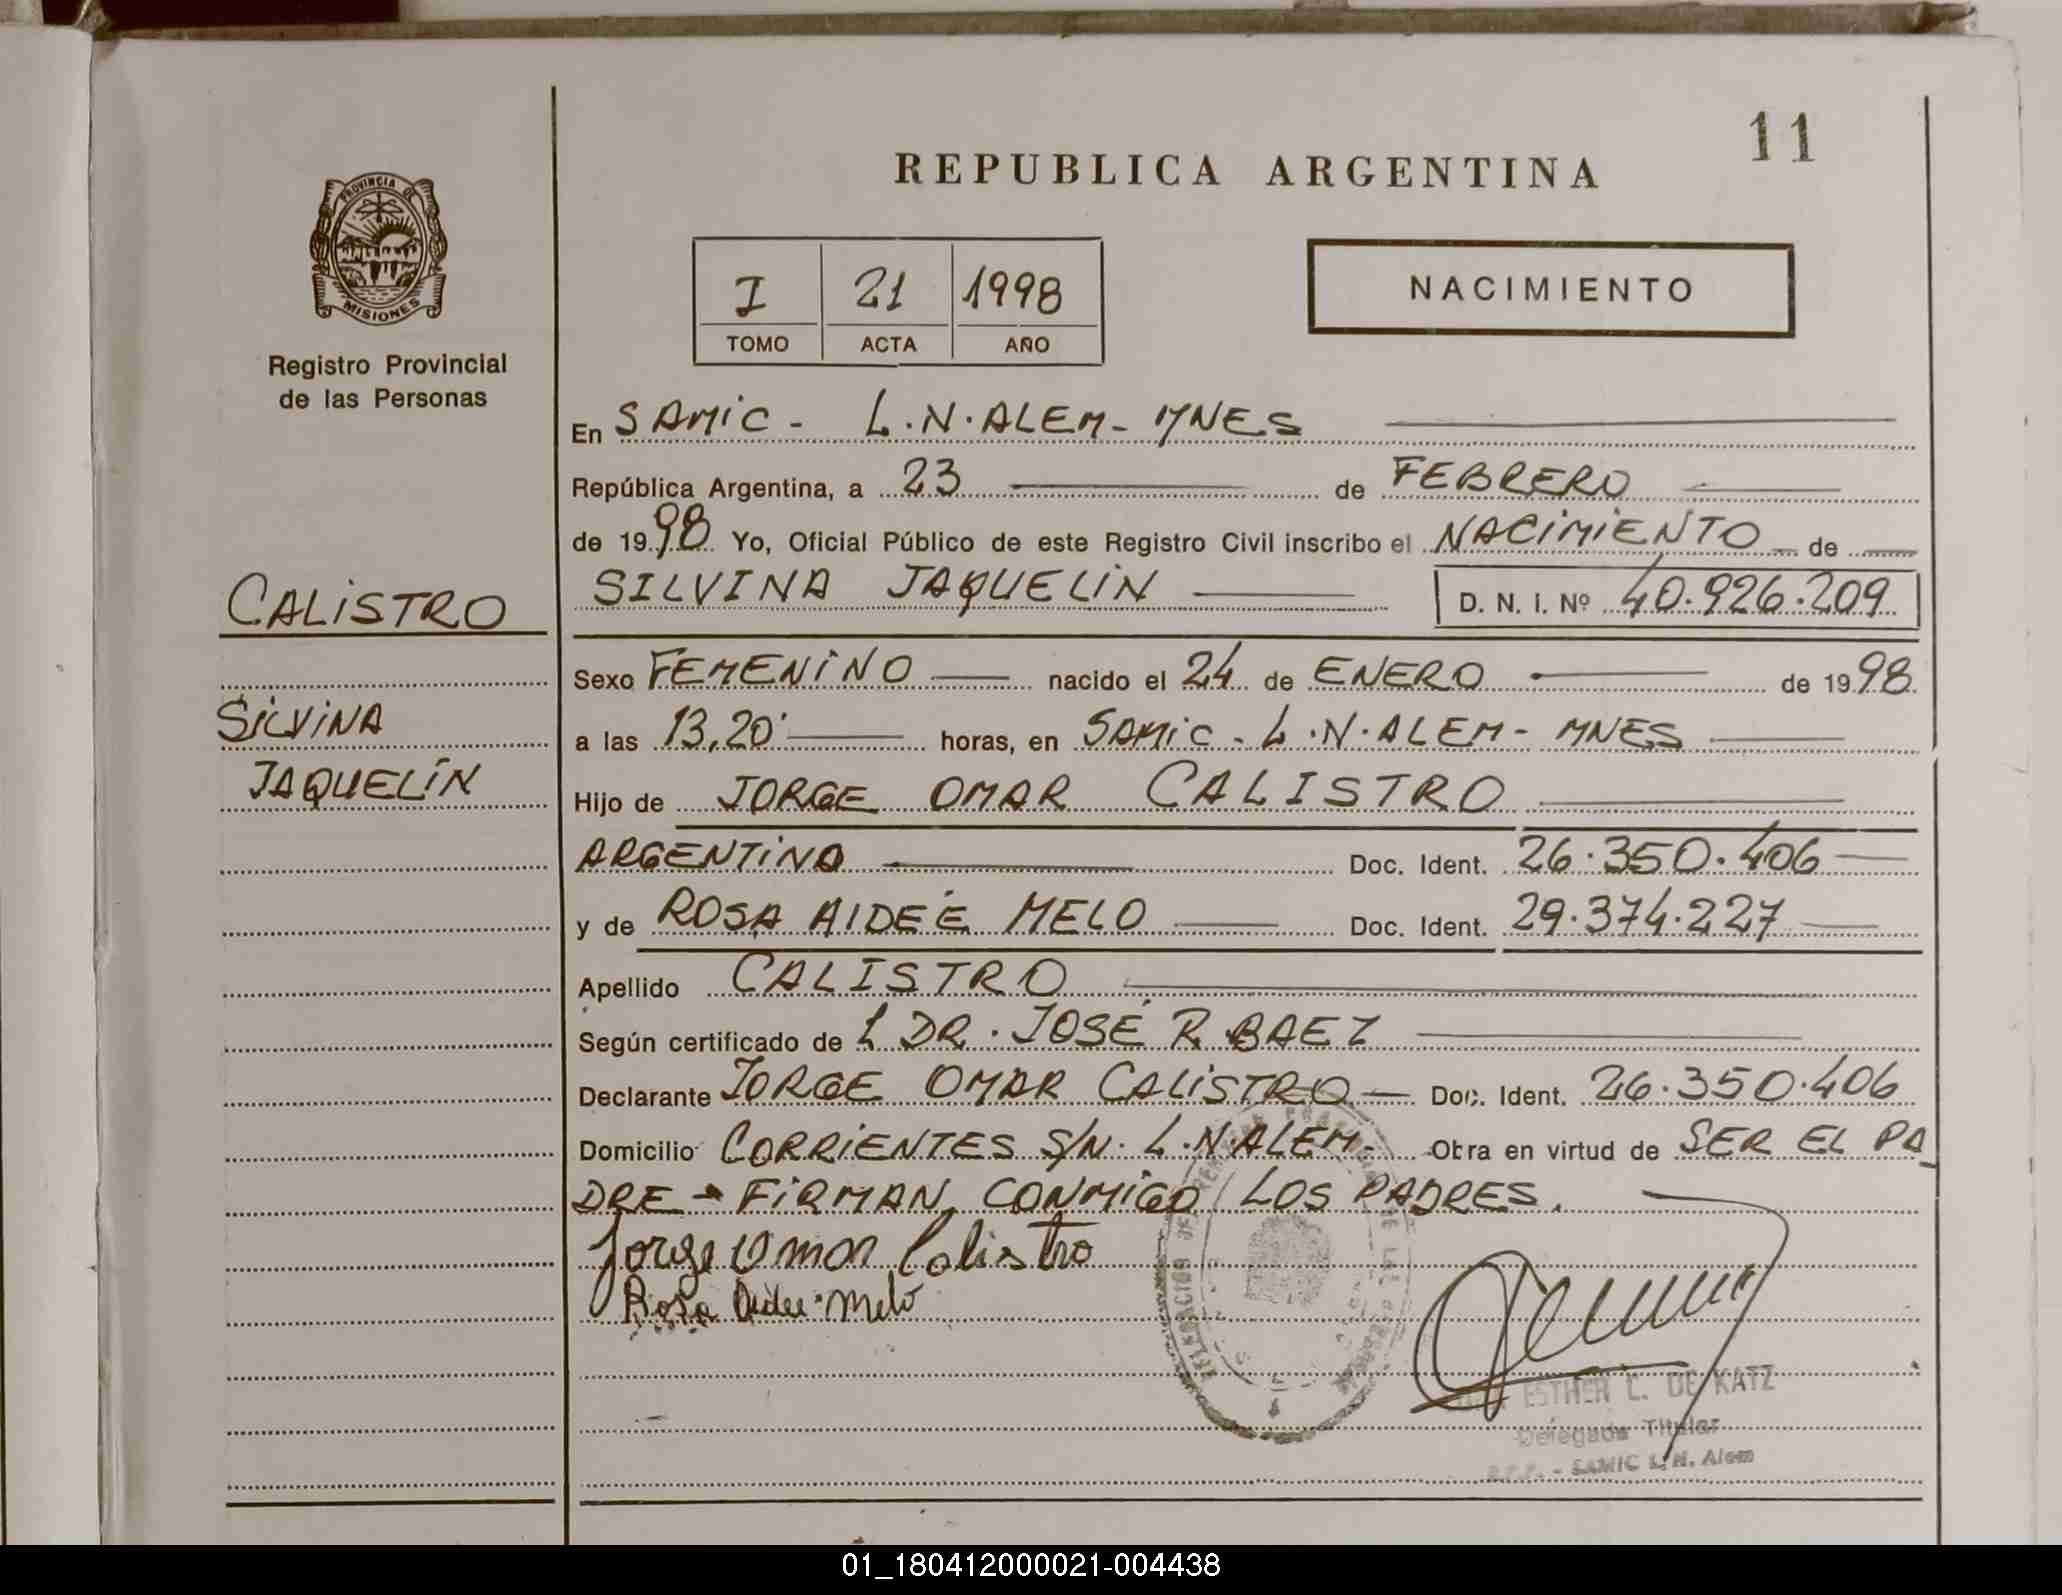 11
REPUBLICA ARGENTINA
PROVINCIA DE
MISIONES
Registro Provincial
de las Personas
I 21 1998
TOMO ACTA AÑO
NACIMIENTO
En SAMIC - L.N.ALEM - MNES
República Argentina, a 23 de FEBRERO
de 1998 Yo, Oficial Público de este Registro Civil inscribo el NACIMIENTO de
CALISTRO
SILVINA JAQUELIN D. N. I. Nº 40.926.209
Sexo FEMENINO nacido el 24 de ENERO de 1998
SILVINA
a las 13,20' horas, en SAMIC - L.N.ALEM - MNES
JAQUELIN
Hijo de JORGE OMAR CALISTRO
ARGENTINO Doc. Ident. 26.350.406
y de ROSA AIDEÉ MELO Doc. Ident. 29.374.227
Apellido CALISTRO
Según certificado de L DR. JOSÉ R BAEZ
Declarante JORGE OMAR CALISTRO Doc. Ident. 26.350.406
Domicilio CORRIENTES S/N. L.N.ALEM. Obra en virtud de SER EL PA_
DRE - FIRMAN CONMIGO LOS PADRES.
Jorge Omar Calistro
Rosa Aidee Melo
ESTHER C. DE KATZ
Delegada Titular
R.P.P. - SAMIC L. N. Alem
01_180412000021-004438